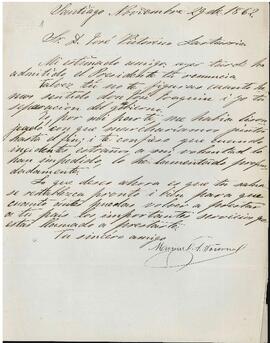 Santiago Noviembre 29 de 1862
Sr. D. José Victorino Lastarria
Mi estimado amigo: ayer tarde ha
admitido el Presidente tu renuncia
Talvez tu no te figuras cuanto he
mos sentido don Joaquin i yo tu
separacion del Gobierno.
Yo por mi parte me habia
que marchariamos juntos
hasta el fin, i te confieso que cuando
incidentes estraños a mi voluntad lo
han impedido lo he lamentado profun
dadamente.
Lo que deseo ahora es que tu salud
se restablezca pronto i bien para que
cuanto antes puedas volver a prestar
a tu pais los importantes servicios que
estás llamado a prestarle.
Tu sincero amigo
Manuel A. Tocornal